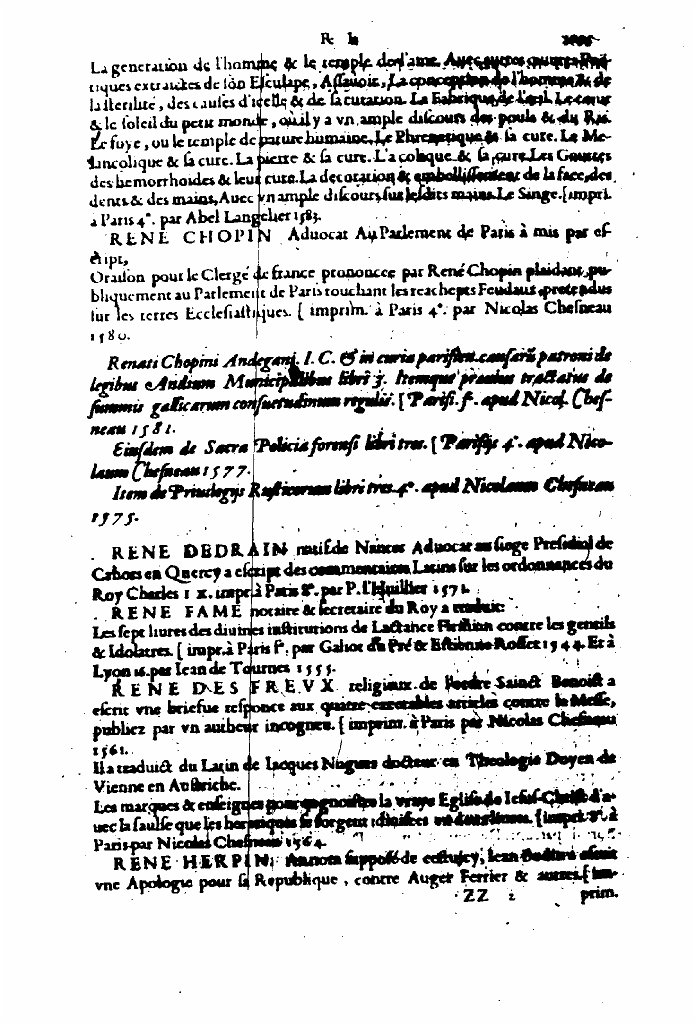 R E
La generation de l'homme & le temple de l'ame. Avec autres œuvres Poë-
tiques extraictes de son Esculape, Assavoir, La conception de l'homme & de
la sterilité, des causes d'icelle & de sa curation. La Fabrique de l'œil. Le cœur
& le soleil du petit monde, où il y a vn ample discours des pouls & du Ris.
Le foye, ou le temple de nature humaine. Le Phrenetique & sa cure. Le Me-
lancolique & sa cure. La pierre & sa cure. La colique & sa cure. Les Gouttes
des hemorrhoides & leur cure. La decoration & embellissement de la face, des
dents & des mains, Auec vn ample discours sur lesdits mains. Le Singe. [impri.
à Paris 4°. par Abel Langelier 1583.
RENE CHOPIN Aduocat Au Parlement de Paris à mis par es-
cript,
Oraison pour le Clergé de france prononcee par René Chopin plaidant pu-
bliquement au Parlement de Paris touchant les reachepts Feudaux pretendus
sur les terres Ecclesiastiques. [ imprim. à Paris 4°. par Nicolas Chesneau
1580.
Renati Chopini Andegani. I. C. & in curia parisien. causarũ patroni de
legibus Andium Municipalibus libri 3. Itemque prævius tractatus de
summis gallicarum consuetudinum regulis. [ Parisi. f°. apud Nicol. Ches-
neau 1581.
Eiusdem de Sacra Policia forensi libri tres. [ Parisijs 4°. apud Nico-
laum Chesneau 1577.
Item de Priuilegijs Rusticorum libri tres 4°. apud Nicolaum Chesneau
1575.
RENE DEDRAIN natif de Nances Aduocat au siege Presidial de
Cahors en Quercy a escript des commentaires Latins sur les ordonnances du
Roy Charles IX. impr. à Paris 8°. par P. l'Huillier 1571.
RENE FAME notaire & secretaire du Roy a traduit:
Les sept liures des diuines institutions de Lactance Firmian contre les gentils
& Idolatres. [ impr. à Paris f°. par Galiot du Pré & Estienne Roffet 1544. Et à
Lyon 16. par Iean de Tournes 1555.
RENE DES FREVX religieux de l'ordre Sainct Benoist a
escrit vne briefue responce aux quatre execrables articles contre la Messe,
publiez par vn autheur incogneu. [ imprim. à Paris par Nicolas Chesneau
1561.
Il a traduict du Latin de Iacques Nogueus docteur en Theologie Doyen de
Vienne en Austriche.
Les marques & enseignes pour cognoistre la vraye Eglise de Iesus-Christ d'a-
uec la faulse que les heretiques se forgent [impri. 8°. à
Paris par Nicolas Chesneau 1564.
RENE HERPIN, nom supposé de cestuicy, Iean Bodin a escrit
vne Apologie pour sa Republique, contre Auger Ferrier & autres. [ im-
ZZ 2 prim.